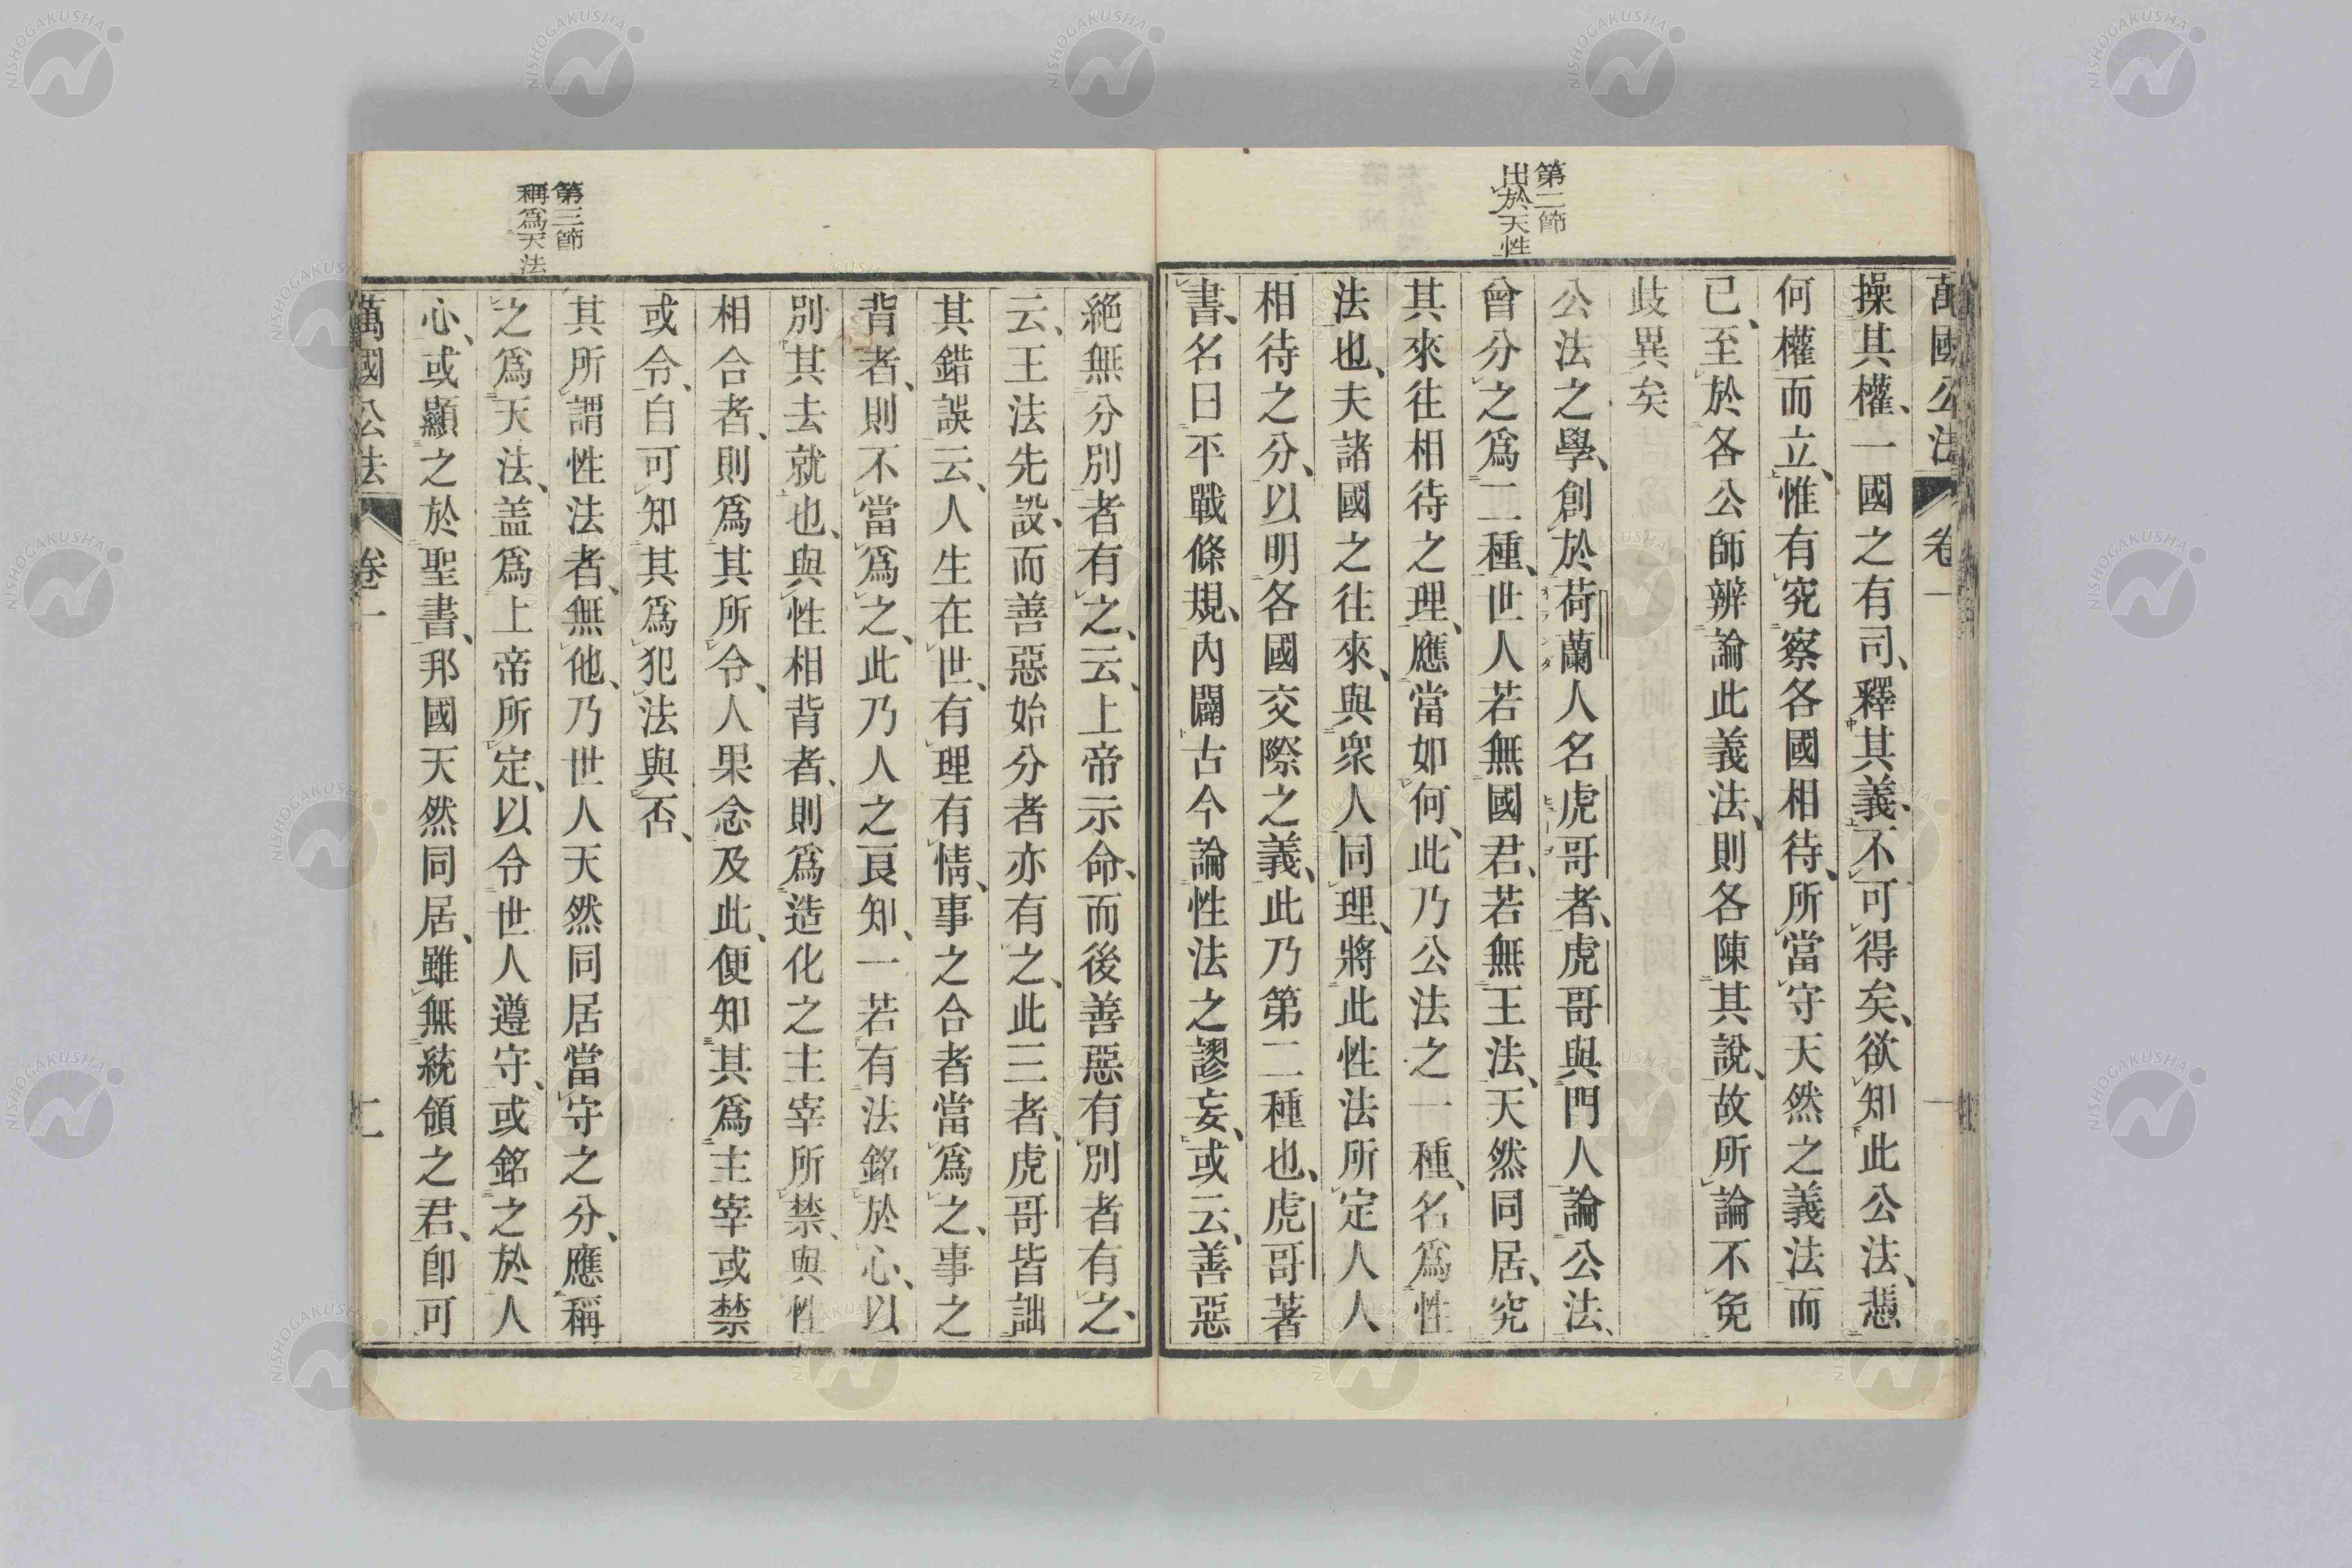 萬國公法 卷一 一
第二節
出於天性
操其權、一國之有司、釋其義、不可得矣、欲知此公法、憑
何權而立、惟有究察各國相待、所當守天然之義法而
已、至於各公師辨論此義法、則各陳其說、故所論不免
歧異矣
公法之學、創於荷蘭人名虎哥者、虎哥與門人論公法、
曾分之爲二種、世人若無國君、若無王法、天然同居、究
其來往相待之理、應當如何、此乃公法之一種、名爲性
法也、夫諸國之往來、與衆人同理、將此性法所定人人
相待之分、以明各國交際之義、此乃第二種也、虎哥著
書、名曰平戰條規、內闢古今論性法之謬妄、或云、善惡
絕無分別者有之、云、上帝示命、而後善惡有別者有之、
云、王法先設、而善惡始分者亦有之、此三者、虎哥皆詘
其錯誤云、人生在世、有理有情、事之合者當爲之、事之
背者、則不當爲之、此乃人之良知、一若有法銘於心、以
別其去就也、與性相背者、則爲造化之主宰所禁、與性
相合者、則爲其所令、人果念及此、便知其爲主宰或禁
或令、自可知其爲犯法與否、
第三節
稱爲天法
其所謂性法者、無他、乃世人天然同居當守之分、應稱
之爲天法、盖爲上帝所定、以令世人遵守、或銘之於人
心、或顯之於聖書、邦國天然同居、雖無統領之君、卽可
萬國公法 卷一 二
NISHOGAKUSHA